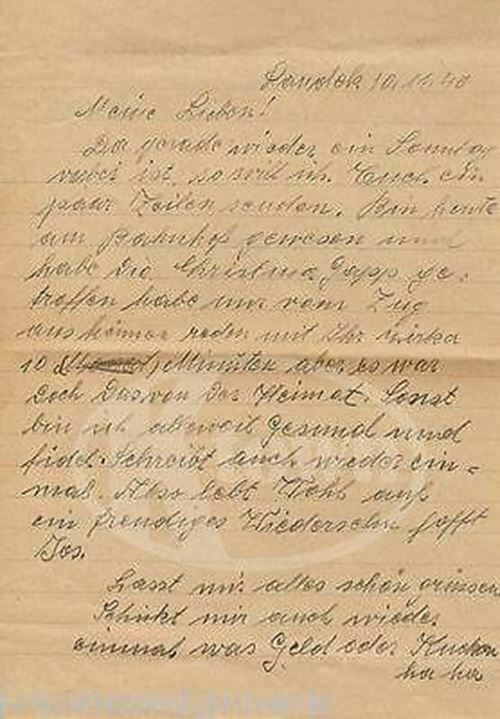 Landek 10.11.40
Meine Lieben!
Da gerade wieder ein Sonntag
vorbei ist, so will ich Euch ein
paar Zeilen senden. Bin heute
am Bahnhof gewesen und
habe die Christina Japp ge-
troffen habe nur vom Zug
aus können reden mit Ihr zirka
10 Minuten aber es war
doch was von der Heimat. Sonst
bin ich alleweil Gesund und
fidel. Schreibt auch wieder ein-
mal. Also lebt Wohl auf
ein freudiges Wiedersehn hofft
Jos.
Lasst mir alles schön grüssen
Schickt mir auch wieder
einmal was Geld oder Kuchen
ha ha